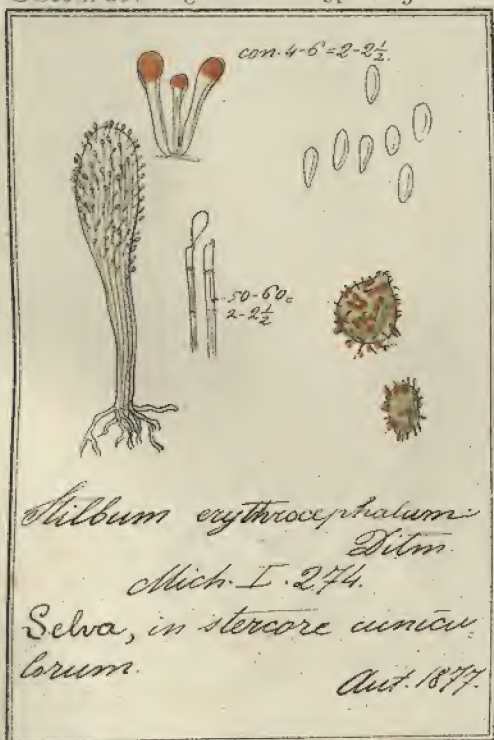 con. 4-6=2-2½.
50-60=
2-2½
Stilbum erythrocephalum
Ditm.
Mich. I. 274.
Selva, in stercore cunicu-
lorum.
Aut. 1877.